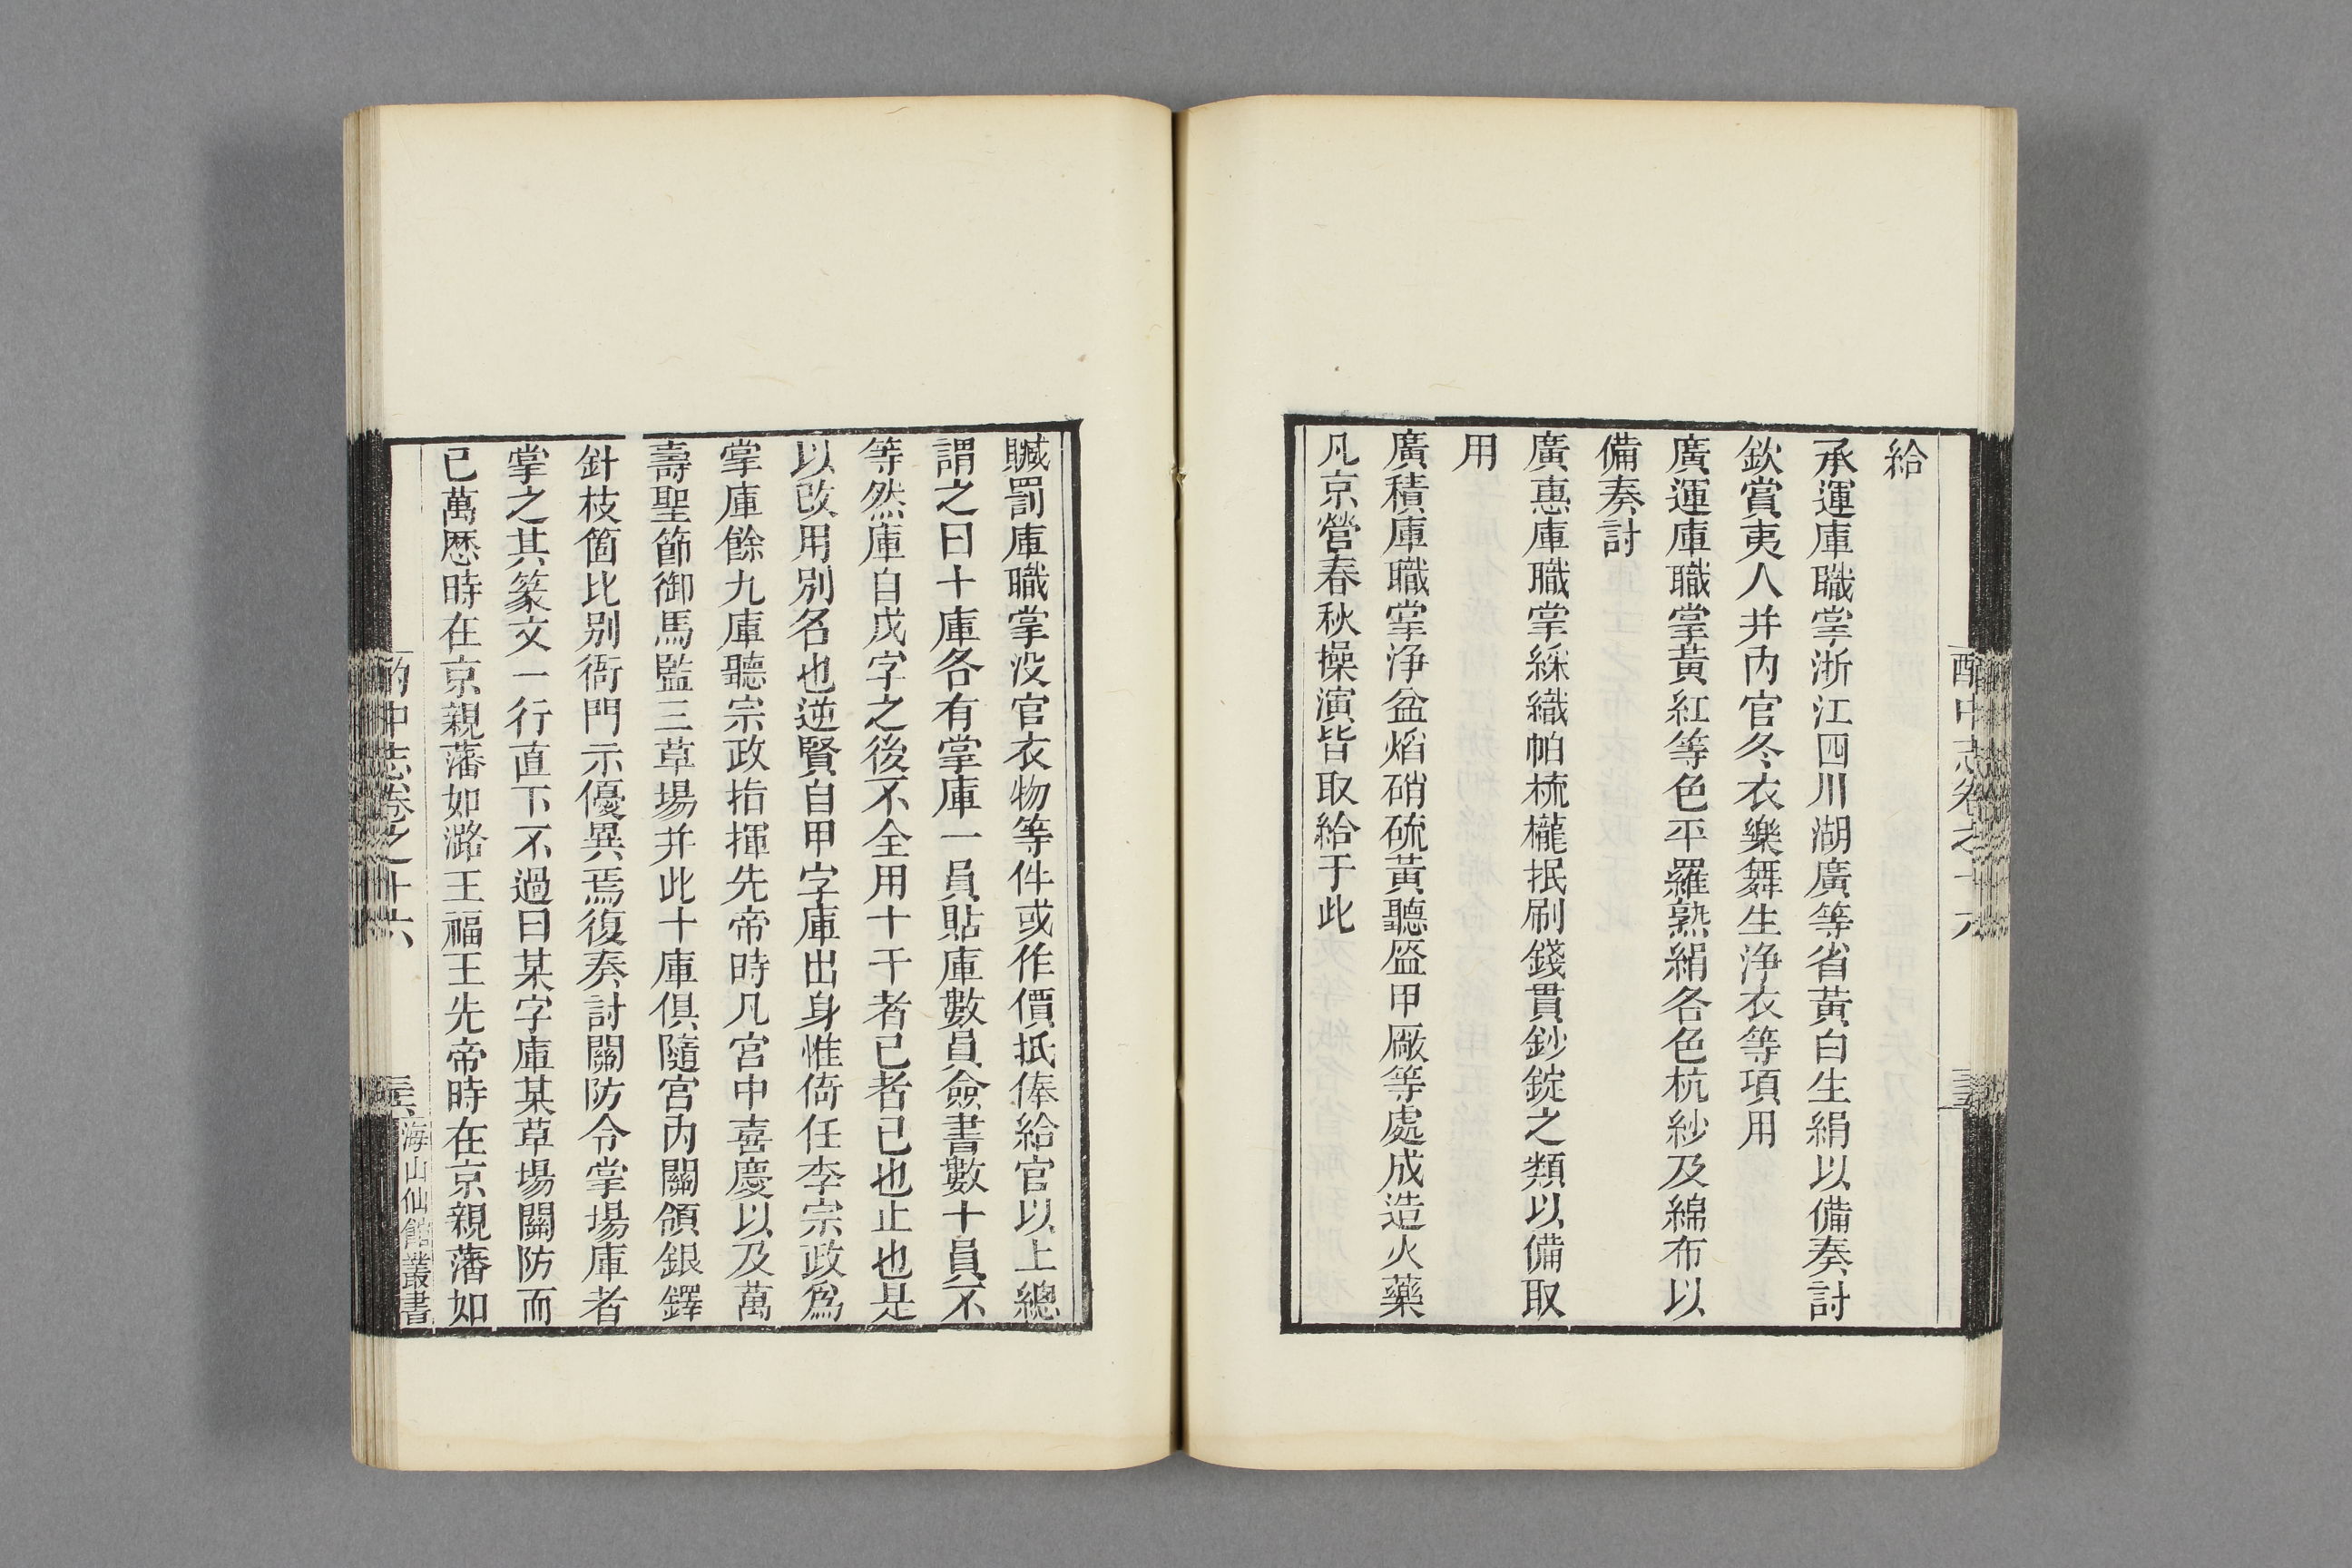 給
承運庫職掌浙江四川湖廣等省黃白生絹以備奏討
欽賞夷人并內官冬衣樂舞生淨衣等項用
廣運庫職掌黃紅等色平羅熟絹各色杭紗及綿布以
備奏討
廣惠庫職掌綵織帕梳櫳抿刷錢貫鈔錠之類以備取
用
廣積庫職掌淨盆焰硝硫黃聽盔甲廠等處成造火藥
凡京營春秋操演皆取給于此
贓罰庫職掌沒官衣物等件或作價抵俸給官以上總
謂之曰十庫各有掌庫一員貼庫數員僉書數十員不
等然庫自戊字之後不全用十干者已者已也止也是
以改用別名也逆賢自甲字庫出身惟倚任李宗政爲
掌庫餘九庫聽宗政指揮先帝時凡宮中喜慶以及萬
壽聖節御馬監三草場并此十庫俱隨宮內關領銀鐸
針枝箇比別衙門示優異焉復奏討關防令掌場庫者
掌之其篆文一行直下不過曰某字庫某草場關防而
已萬歷時在京親藩如潞王福王先帝時在京親藩如
酌中志卷之十六
海山仙館叢書